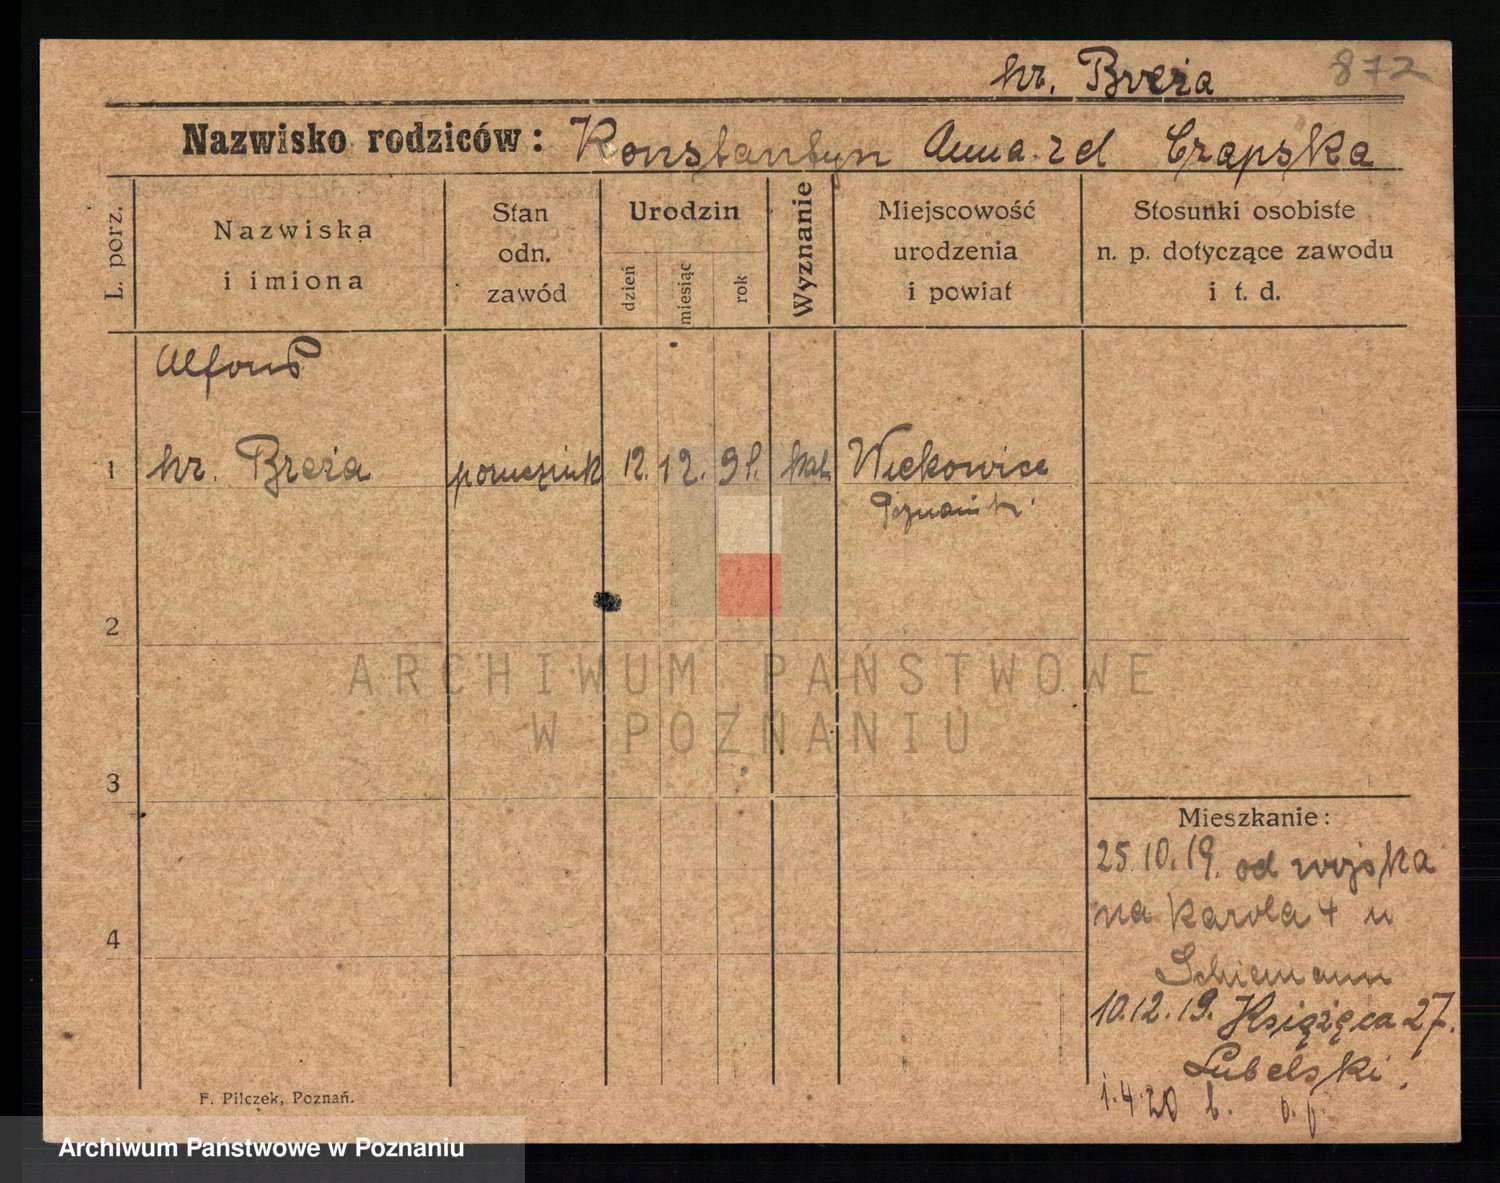 hr. Breża 872
Nazwisko rodziców: Konstantyn Anna zd Czapska
L. porz.
Nazwiska
i imiona
Stan
odn.
zawód
Urodzin
dzień
miesiąc
rok
Wyznanie
Miejscowość
urodzenia
i powiat
Stosunki osobiste
n. p. dotyczące zawodu
i t. d.
Alfons
1 hr. Breża porucznik 12. 12. 91. kat. Więkowice
Poznański
2
ARCHIWUM PAŃSTWOWE
W POZNANIU
3
Mieszkanie:
25.10.19. od wojska
na Karola 4 u
4
Schiemann
10.12.19. Książęca 27.
Lubelski.
1.4.20 b. o. p.
F. Pilczek, Poznań.
Archiwum Państwowe w Poznaniu